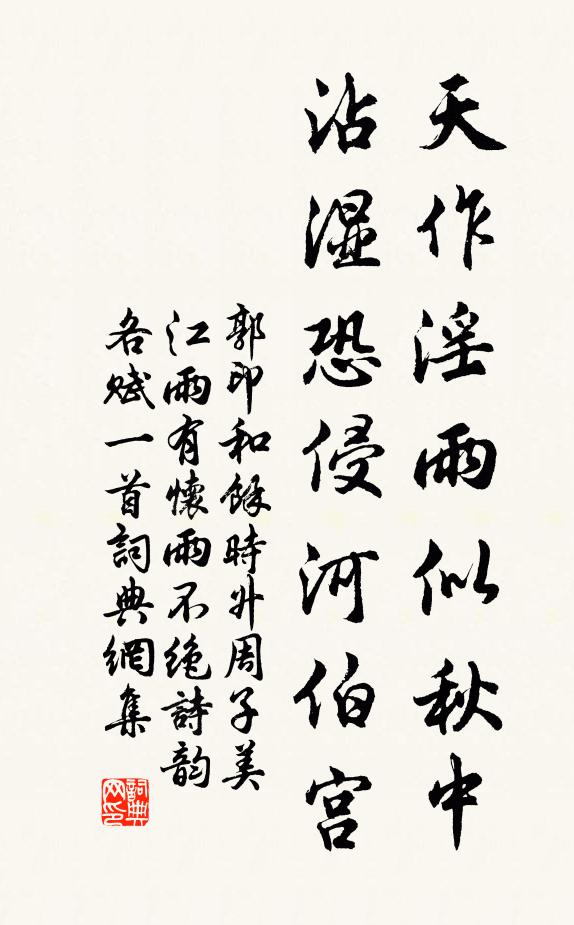 天作淫雨似秋中
沾湿恐侵河伯宫
郭印和餘時升周子美
江雨有懷雨不绝詩韵
各赋一首詞典網集
詞典
网印